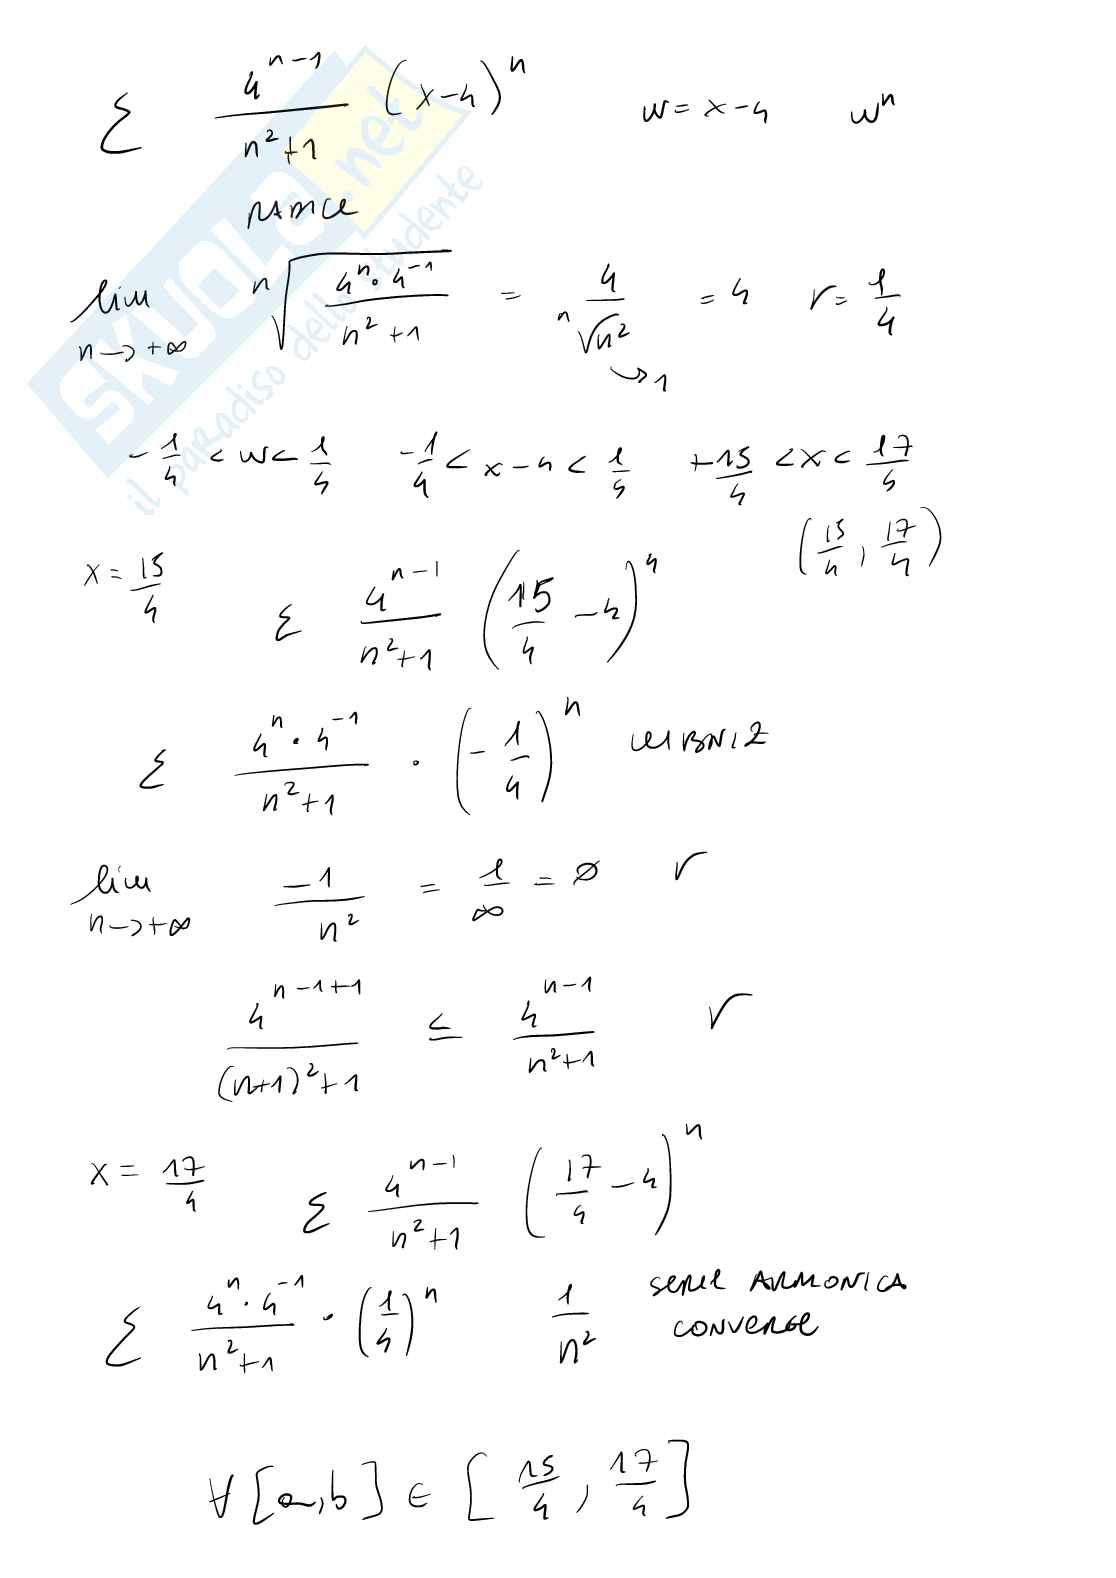 Σ 4^(n-1)/(n²+1) (x-4)^n   w = x-4   w^n
RADICE
lim n→+∞ ⁿ√(4^n · 4^(-1)/(n²+1)) = 4/ⁿ√n² = 4   r = 1/4
→1
-1/4 < w < 1/4   -1/4 < x-4 < 1/4   +15/4 < x < 17/4
(15/4, 17/4)
x = 15/4   Σ 4^(n-1)/(n²+1) (15/4 - 4)^n
Σ 4^n · 4^(-1)/(n²+1) · (-1/4)^n   LEIBNIZ
lim n→+∞ -1/n² = 1/∞ = ∅ ✓
4^(n-1+1)/((n+1)²+1) ≤ 4^(n-1)/(n²+1) ✓
x = 17/4   Σ 4^(n-1)/(n²+1) (17/4 - 4)^n
Σ 4^n · 4^(-1)/(n²+1) · (1/4)^n   1/n²   SERIE ARMONICA
CONVERGE
∀ [a,b] ∈ [15/4, 17/4]
SKUOLA.net
il paradiso dello studente